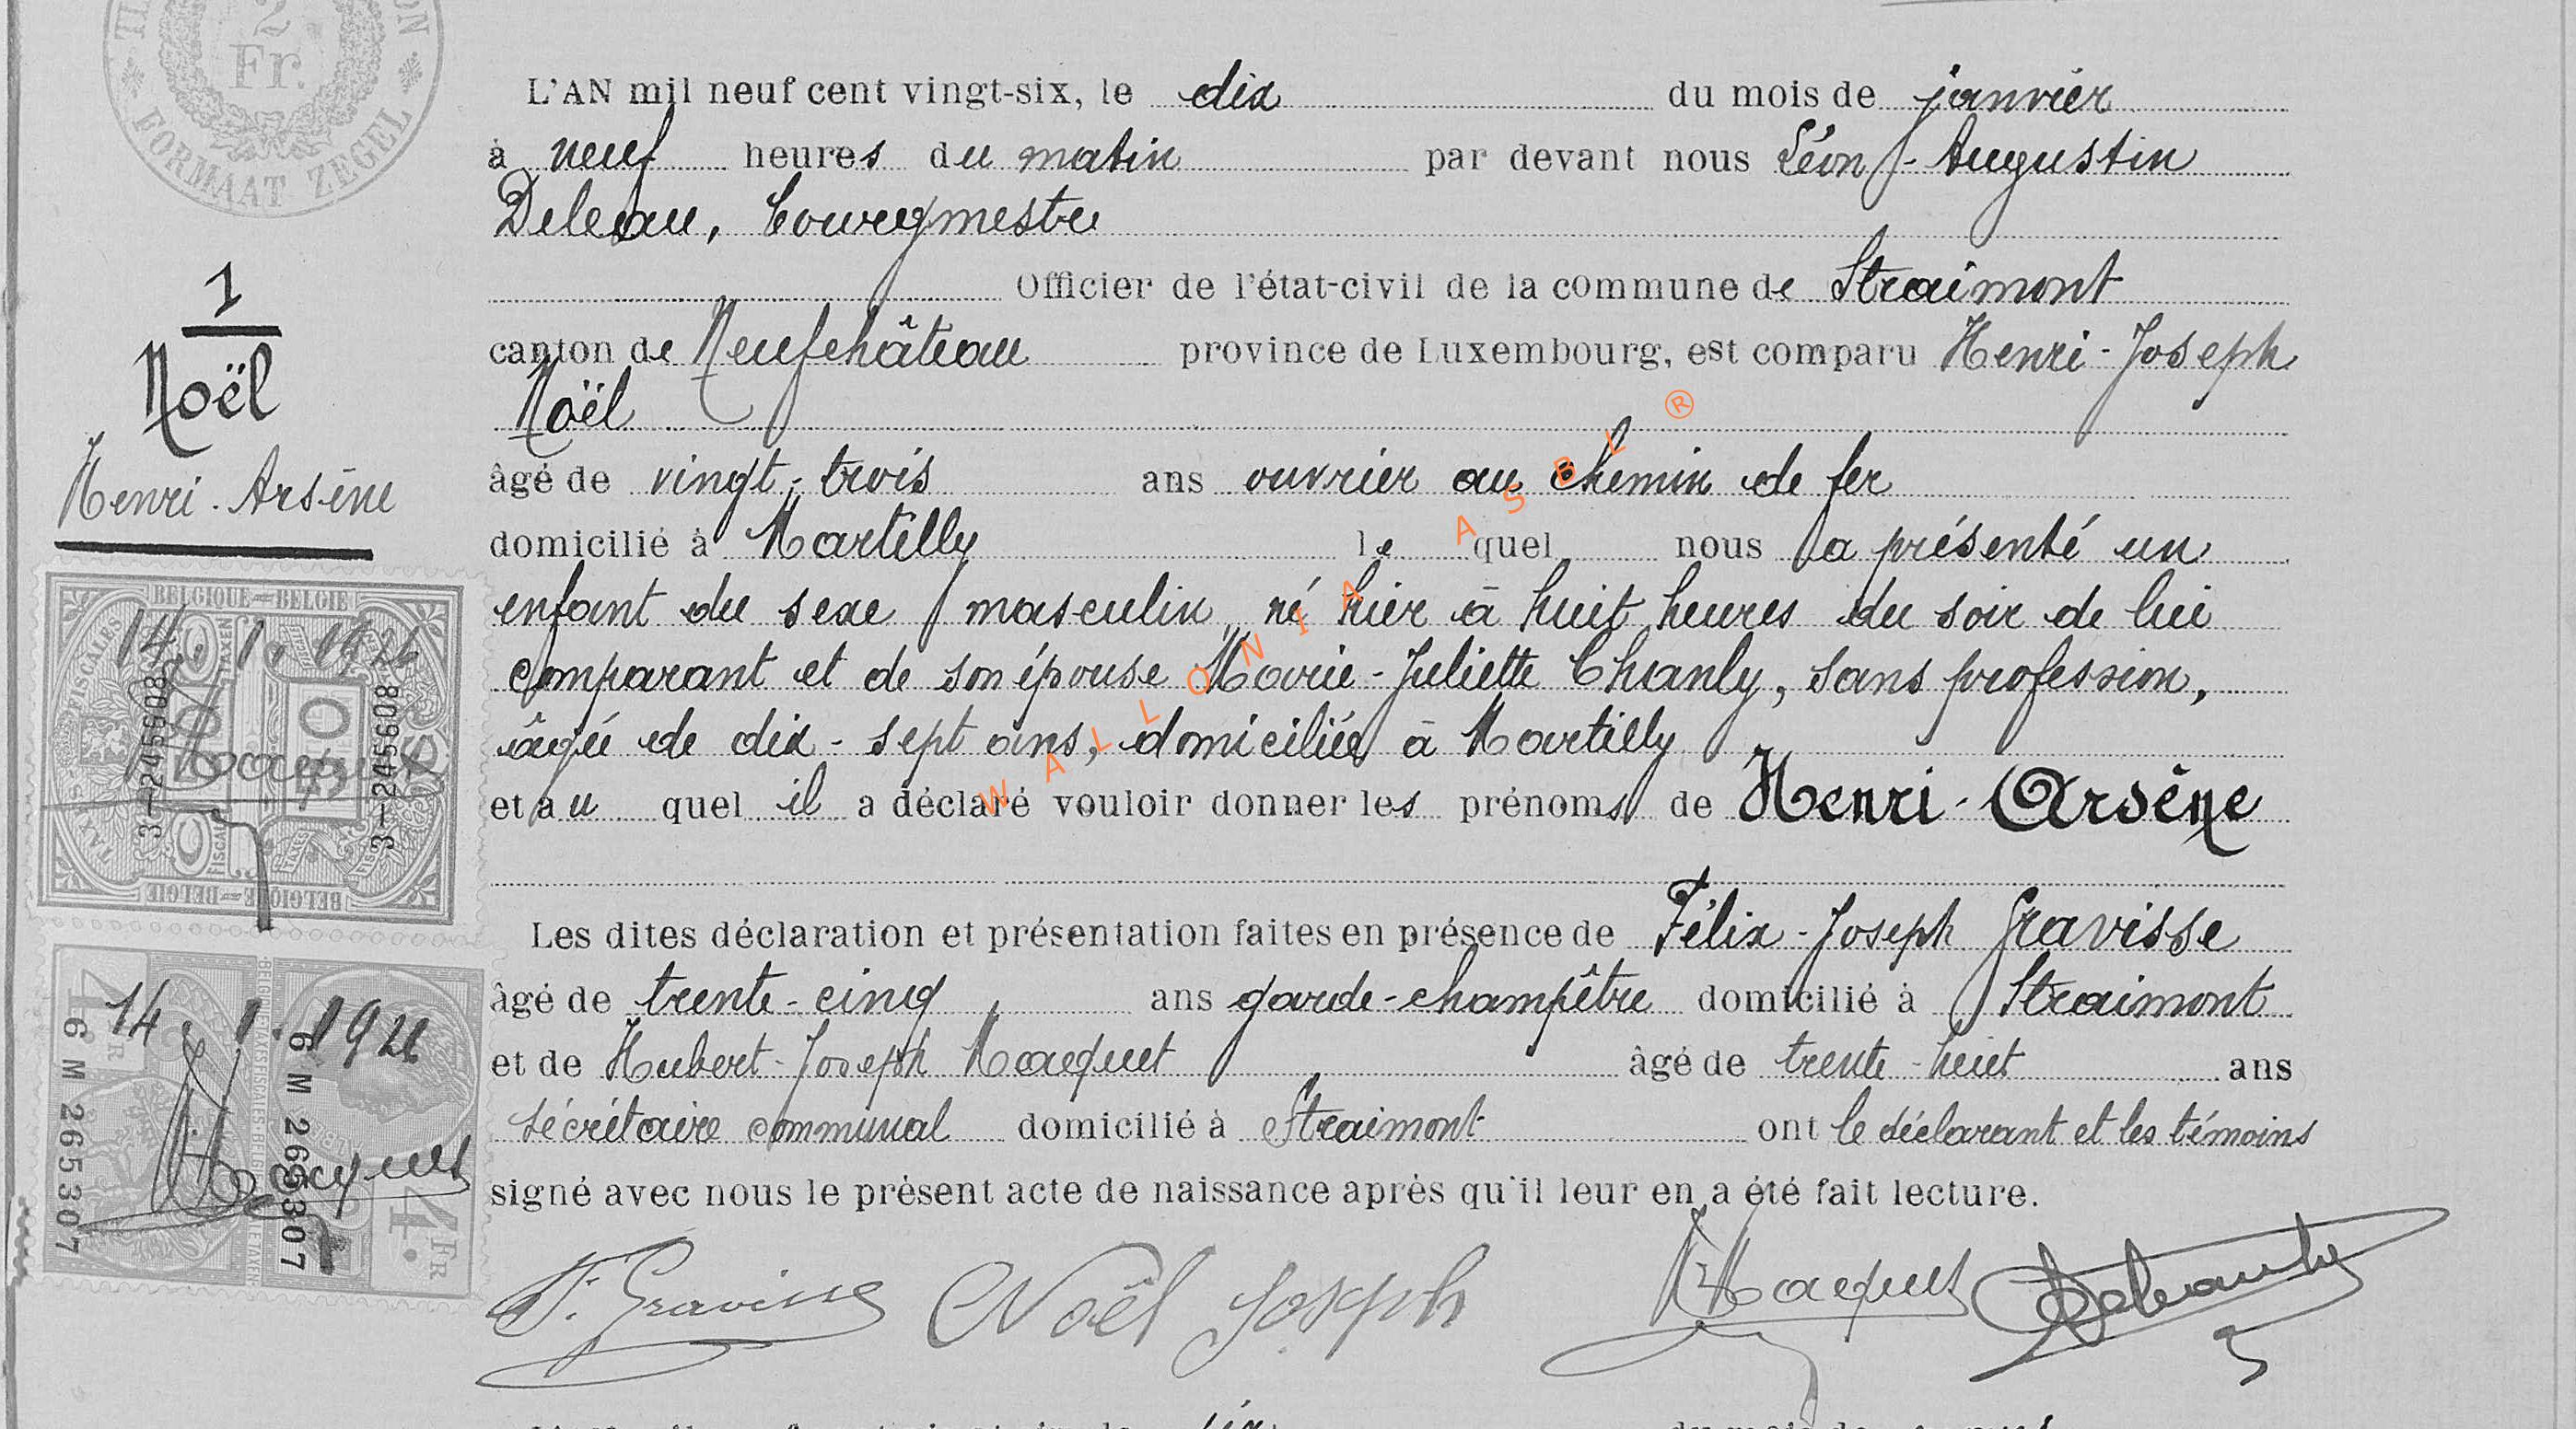 2
Fr.
FORMAAT ZEGEL
L'AN mil neuf cent vingt-six, le dix du mois de janvier
à neuf heures du matin par devant nous Léon-Augustin
Deleau, bourgmestre
Officier de l'état-civil de la commune de Straimont
canton de Neufchâteau province de Luxembourg, est comparu Henri-Joseph
Noël
âgé de vingt-trois ans ouvrier au chemin de fer
domicilié à Martilly lequel nous a présenté un
enfant du sexe masculin, né hier à huit heures du soir de lui
comparant et de son épouse Marie-Juliette Chanly, sans profession,
âgée de dix-sept ans, domiciliée à Martilly
et au quel il a déclaré vouloir donner les prénoms de Henri-Arsène
Les dites déclaration et présentation faites en présence de Félix-Joseph Gravisse
âgé de trente-cinq ans garde-champêtre domicilié à Straimont
et de Hubert-Joseph Macquet âgé de trente-huit ans
sécrétaire communal domicilié à Straimont ont le déclarant et les témoins
signé avec nous le présent acte de naissance après qu'il leur en a été fait lecture.
F. Gravisse Noël Joseph Macquet
1
Noël
Henri-Arsène
BELGIQUE-BELGIE
14.1.1926
3-245608
3-245608
BELGIQUE-BELGIE
14.1.1926
6 M 265307
6 M 265307
4 FR
Macquet
WALLONIA ASBL ®